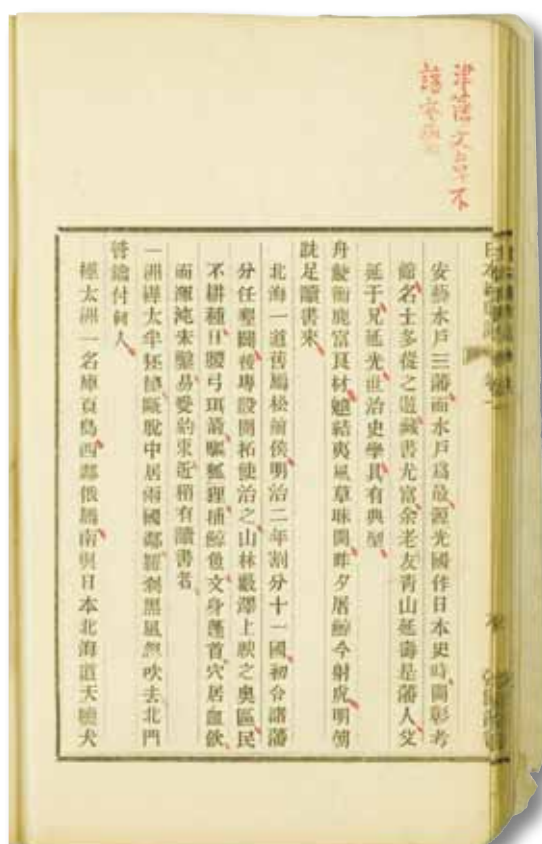 日本雜事詩 卷一
安藝水戶三藩而水戶爲最源光國作日本史時開彰考
館名士多從之遊藏書尤富余老友靑山延壽是藩人父
延于兄延光世治史學具有典型
舟 衝鹿富良材魋結夷風草昧開昨夕屠鯨今射虎明朝
洗足讀書來
北海一道舊屬松前侯明治二年割分十一國初令諸藩
分任墾闢後專設開拓使治之山林藪澤上腴之奧區民
不耕種日腰弓珥箭驅狐狸捕鯨魚文身蓬首穴居血飮
而渾沌未鑿易受約束近稍有讀書者
一洲樺太半狉獉甌脫中居兩國鄰羅剎黑風忽吹去北門
管鑰付何人
樺太洲一名庫頁島西鄰俄屬南與日本北海道天險犬